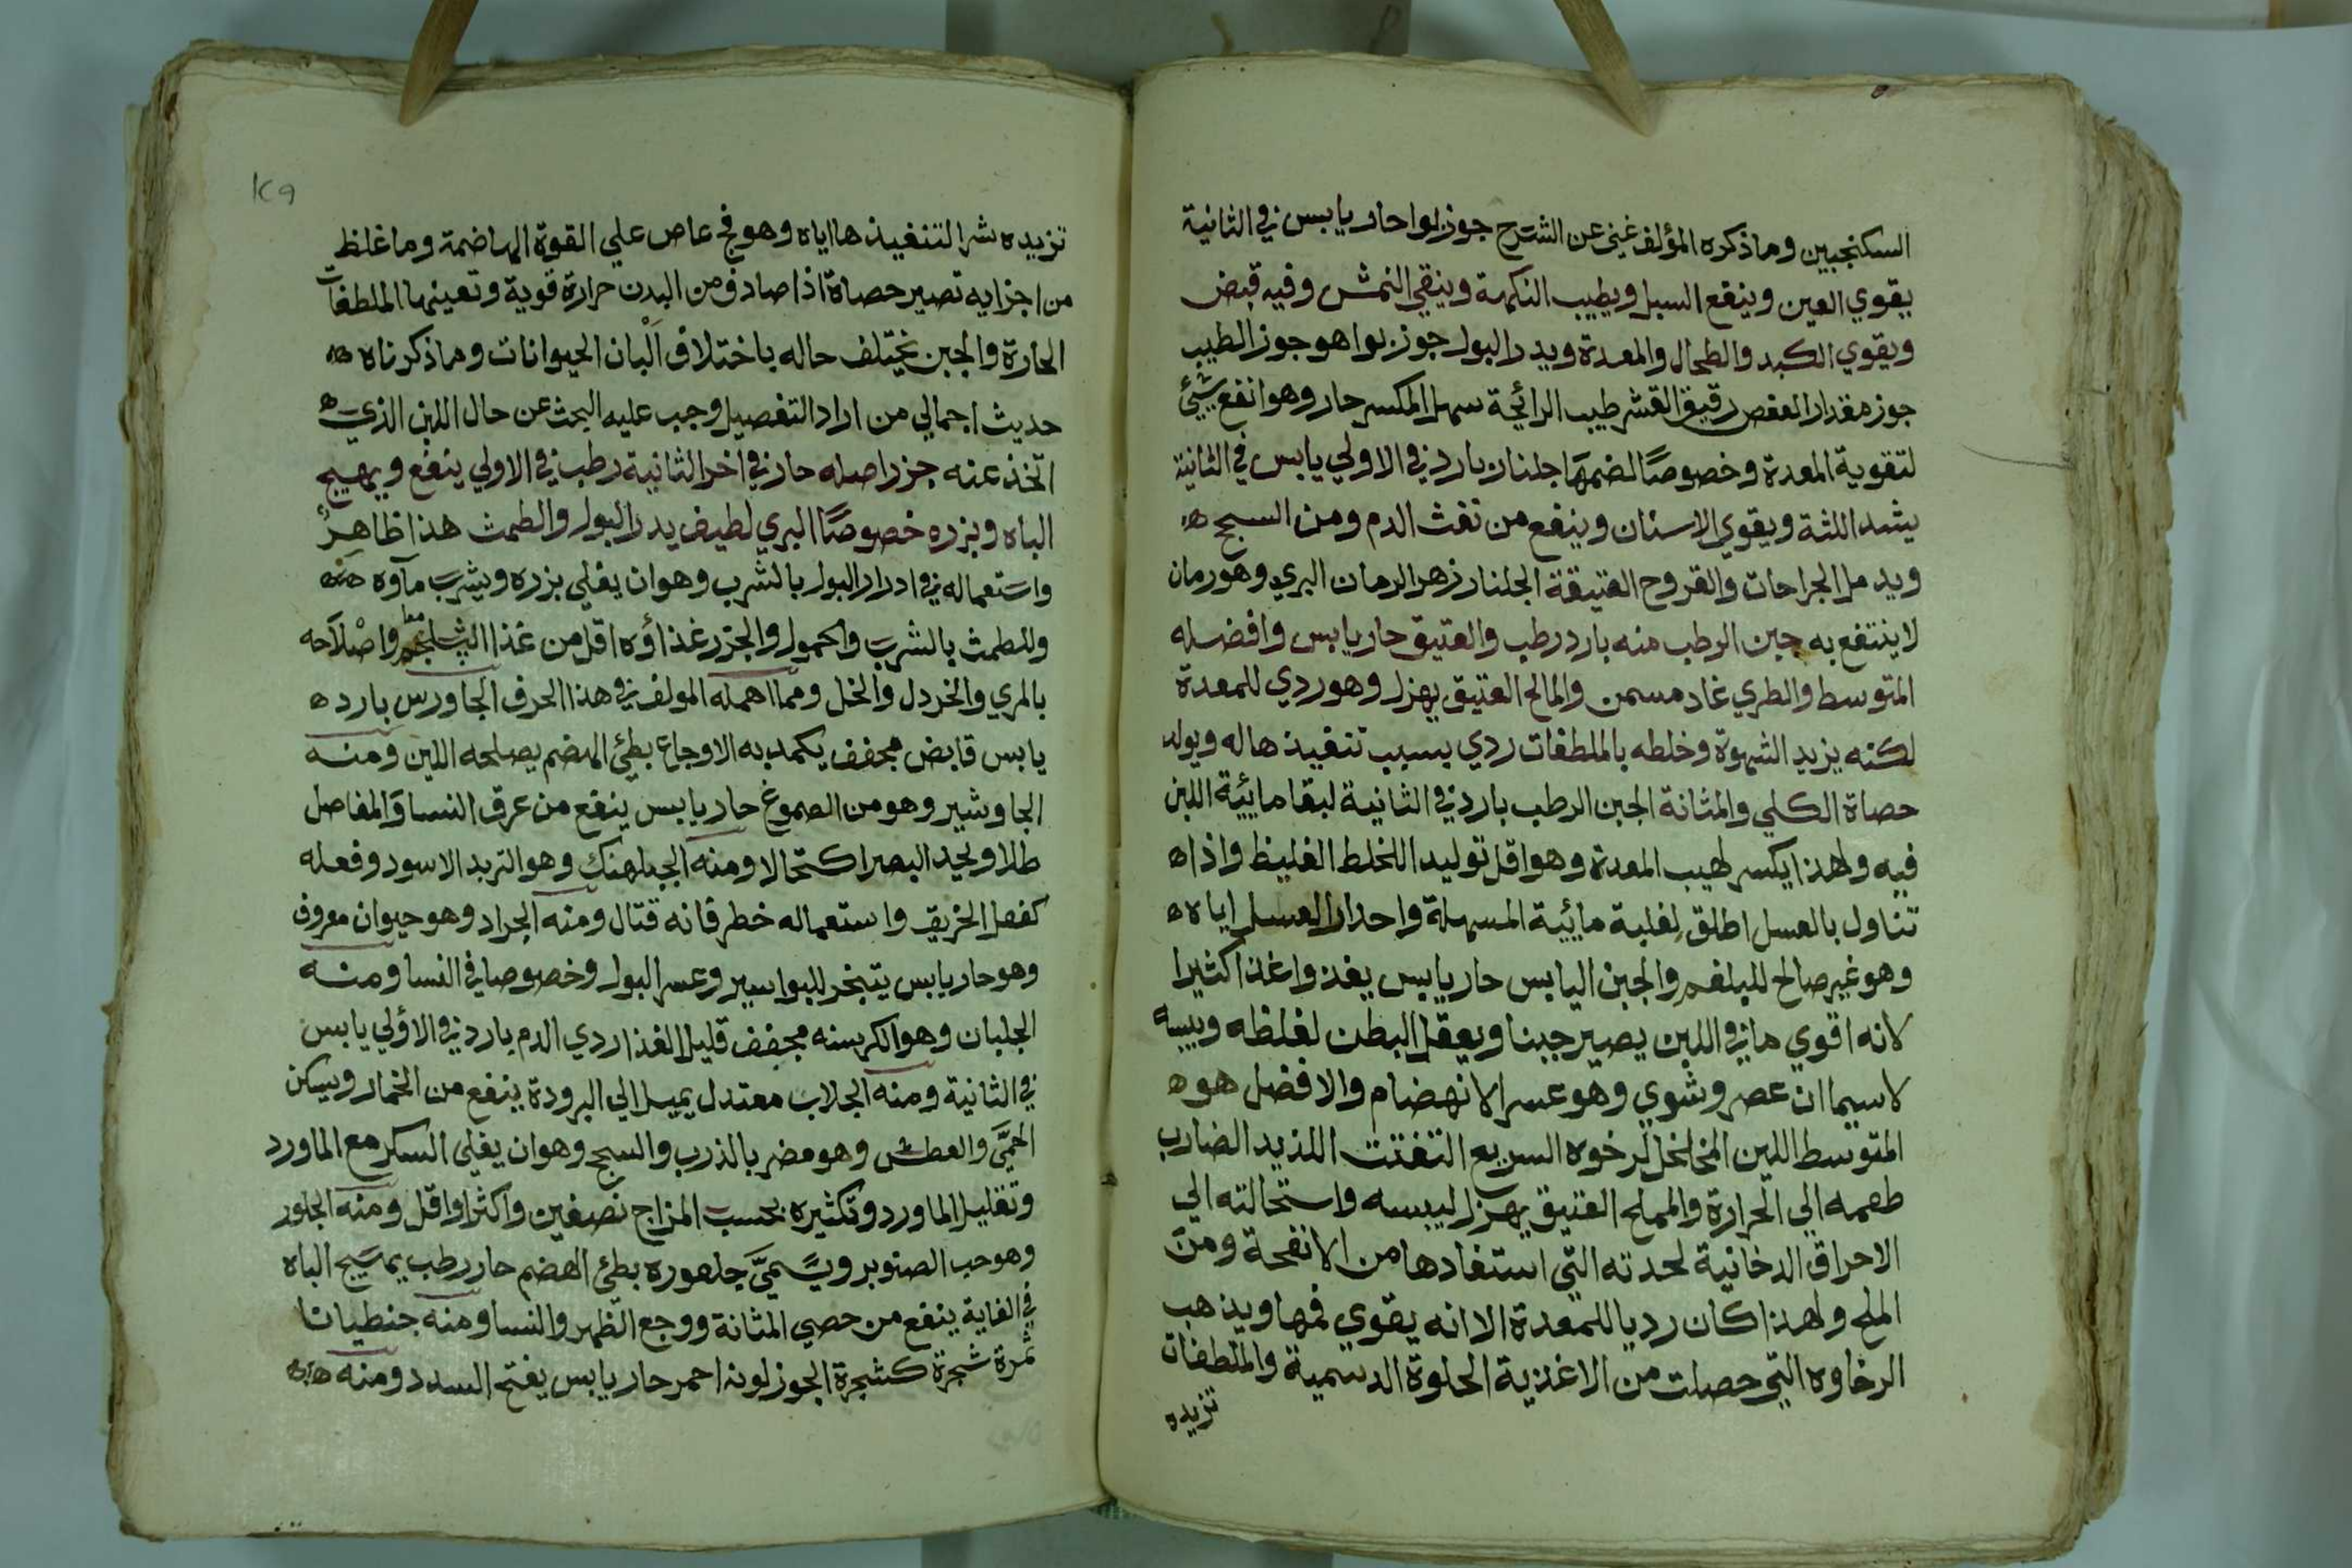 السكنجبين وما ذكره المؤلف غني عن الشرح جوز بوا حار يابس في الثانية
يقوي العين وينفع السبل ويطيب النكهة وينقي النمش وفيه قبض
ويقوي الكبد والطحال والمعدة ويدر البول جوز بوا هو جوز الطيب
جوز مقدار العفص رقيق القشر طيب الرائحة سهل المكسر حار وهو انفع شيئ
لتقوية المعدة وخصوصًا لضمها جلنار بارد في الاولي يابس في الثانية
يشد اللثة ويقوي الاسنان وينفع من نفث الدم ومن السحج
ويدمل الجراحات والقروح العتيقة الجلنار زهر الرمان البري وهو رمان
لا ينتفع به جبن الرطب منه بارد رطب والعتيق حار يابس وافضله
المتوسط والطري غاد مسمن والمالح العتيق يهزل وهو ردي للمعدة
لكنه يزيد الشهوة وخلطه بالملطفات ردي بسبب تنفيذها له ويولد
حصاة الكلي والمثانة الجبن الرطب بارد في الثانية لبقا مايية اللبن
فيه ولهذا يكسر لهيب المعدة وهو اقل توليد اللخلط الغليظ واذا
تناول بالعسل اطلق لغلبة مائية المسهلة واحدار العسل اياه
وهو غير صالح للبلغم والجبن اليابس حار يابس يغذوا غذا كثيرا
لانه اقوي ما في اللبن يصير جبنا ويعقل البطن لغلظه ويبسه
لا سيما ان عصر وشوي وهو عسر الانهضام والافضل هو
المتوسط اللين المخلخل لرخوه السريع التفتت اللذيذ الضارب
طعمه الي الحرارة والمملح العتيق يهزل ليبسه واستحالته الي
الاحراق الدخانية لحدته التي استفادها من الانفحة ومن
الملح ولهذا كان رديا للمعدة الا انه يقوي فمها ويذهب
الرخاوه التي حصلت من الاغذية الحلوة الدسمية والملطفات
تزيده
١٢٩
تزيده شرا لتنفيذها اياه وهو فج عاص علي القوة الهاضمة وما غلظ
من اجزايه تصير حصاة اذا صادف من البدن حرارة قوية وتعينها الملطفات
الحارة والجبن يختلف حاله باختلاف ألبان الحيوانات وما ذكرناه
حديث اجمالي من اراد التفصيل وجب عليه البحث عن حال اللبن الذي
اتخذ عنه جزر اصله حار في اخر الثانية رطب في الاولي ينفع ويهيج
الباه وبزره خصوصًا البري لطيف يدر البول والطمث هذا ظاهر
واستعماله في ادرار البول بالشرب وهو ان يغلي بزره ويشرب مآوه
وللطمث بالشرب والحمول والجزر غذاؤه اقل من غذا الشلجم واصلاحه
بالمري والخردل والخل ومما اهمله المولف في هذا الحرف الجاورس بارد
يابس قابض مجفف يكمد به الاوجاع بطئ الهضم يصلحه اللبن ومنه
الجاوشير وهو من الصموغ حار يابس ينفع من عرق النسا والمفاصل
طلا ويحد البصر اكتحالا ومنه الجبلهنك وهو التربد الاسود وفعله
كفعل الخربق واستعماله خطر فانه قتال ومنه الجراد وهو حيوان معروف
وهو حار يابس يتبخر للبواسير وعسر البول وخصوصا في النسا ومنه
الجلبان وهو الكرسنه مجفف قليل الغذا ردي الدم بارد في الاولي يابس
في الثانية ومنه الجلاب معتدل يميل الي البرودة ينفع من الخمار ويسكن
الحمي والعطش وهو مضر بالذرب والسحج وهو ان يغلي السكر مع الماورد
وتقليل الماورد وتكثيره بحسب المزاج نصفين واكثر او اقل ومنه الجلوز
وهو حب الصنوبر ويسمي جلهوره بطئ الهضم حار رطب يهيج الباه
في الغاية ينفع من حصي المثانة ووجع الظهر والنسا ومنه جنطيانا
ثمرة شجرة كشجرة الجوز لونه احمر حار يابس يفتح السدد ومنه